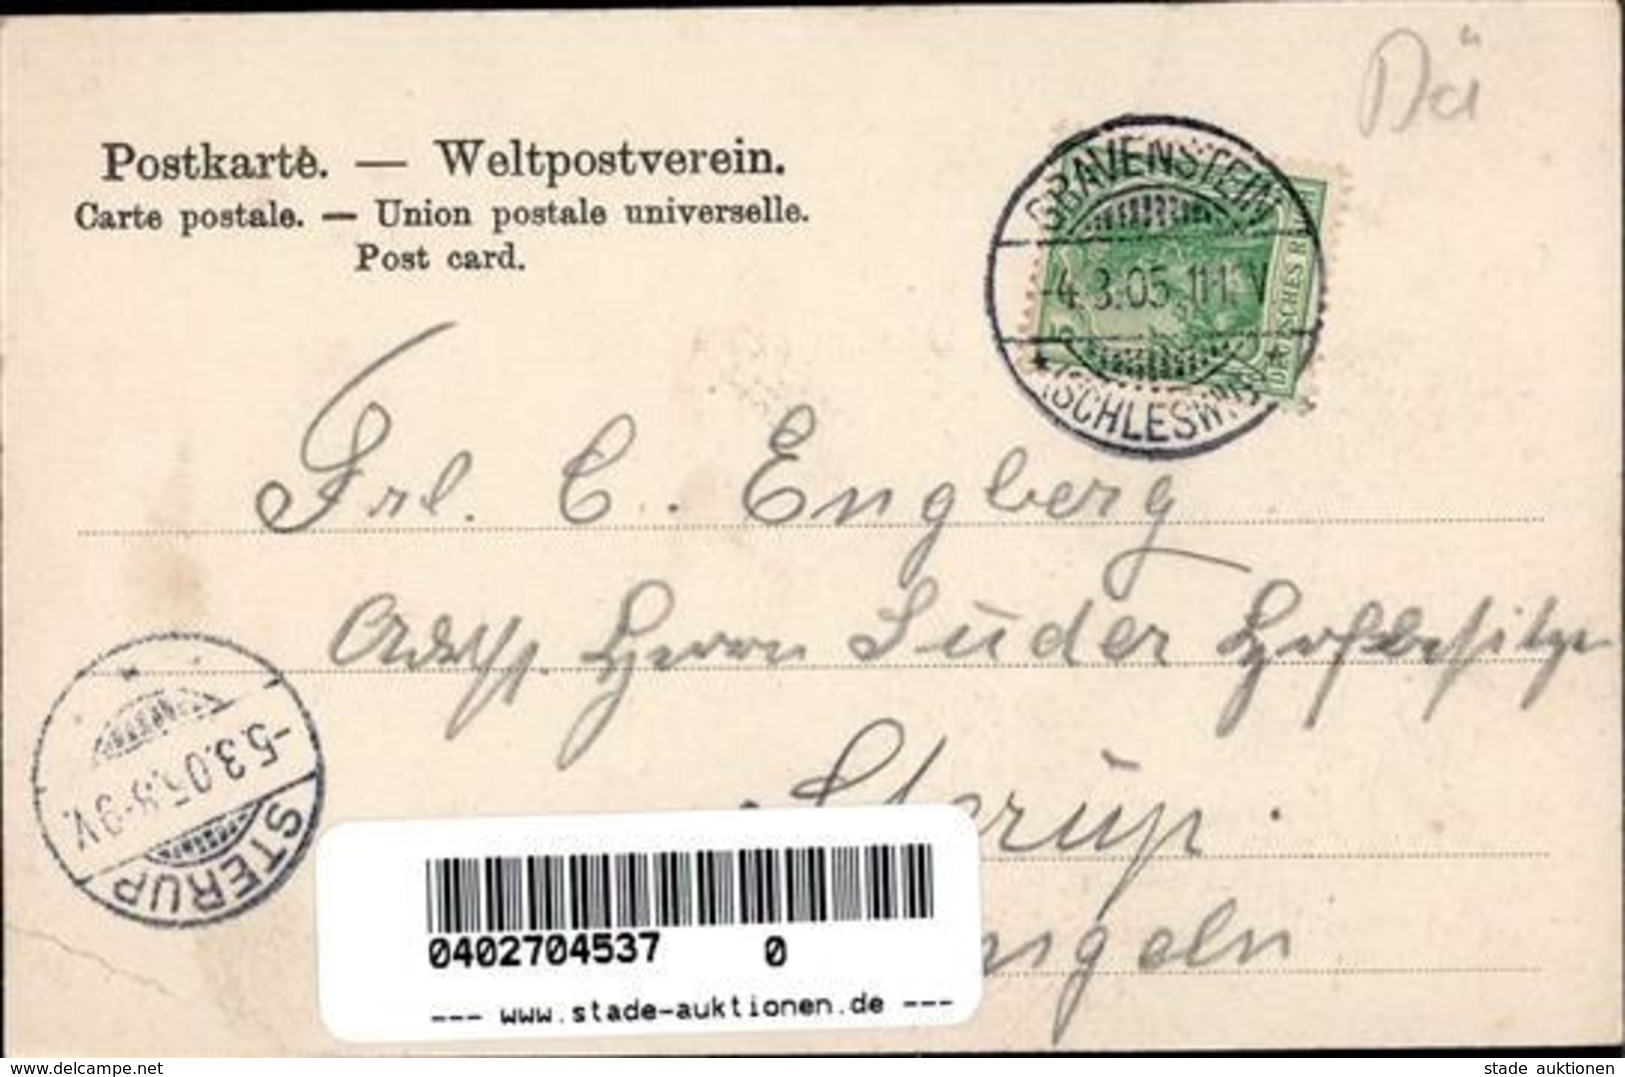 Dä
Postkarte. — Weltpostverein.
Carte postale. — Union postale universelle.
Post card.
GRAVENSTEIN
-4.3.05. 11-12V
* (SCHLESWIG) *
DEUTSCHES R
Frl. C. Engberg
Adr. Herrn Lüder Hofbesitzer
Sterup.
-5.3.05. 8-9V.
STERUP
ngeln
0402704537 0
--- www.stade-auktionen.de ---
www.delcampe.net
stade auktionen